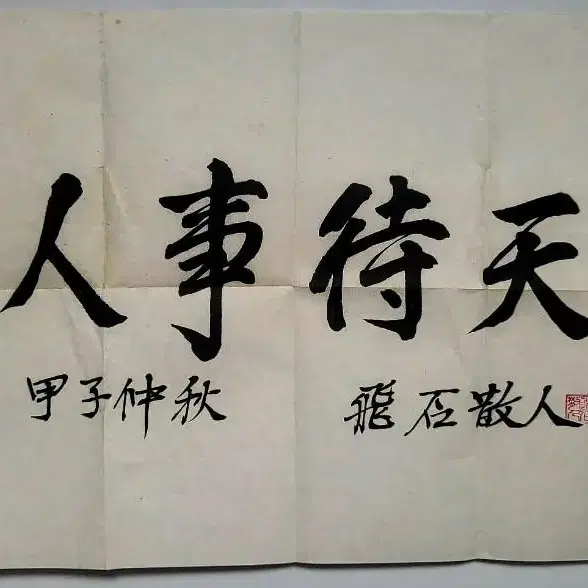 人事待天
甲子仲秋 飛石散人